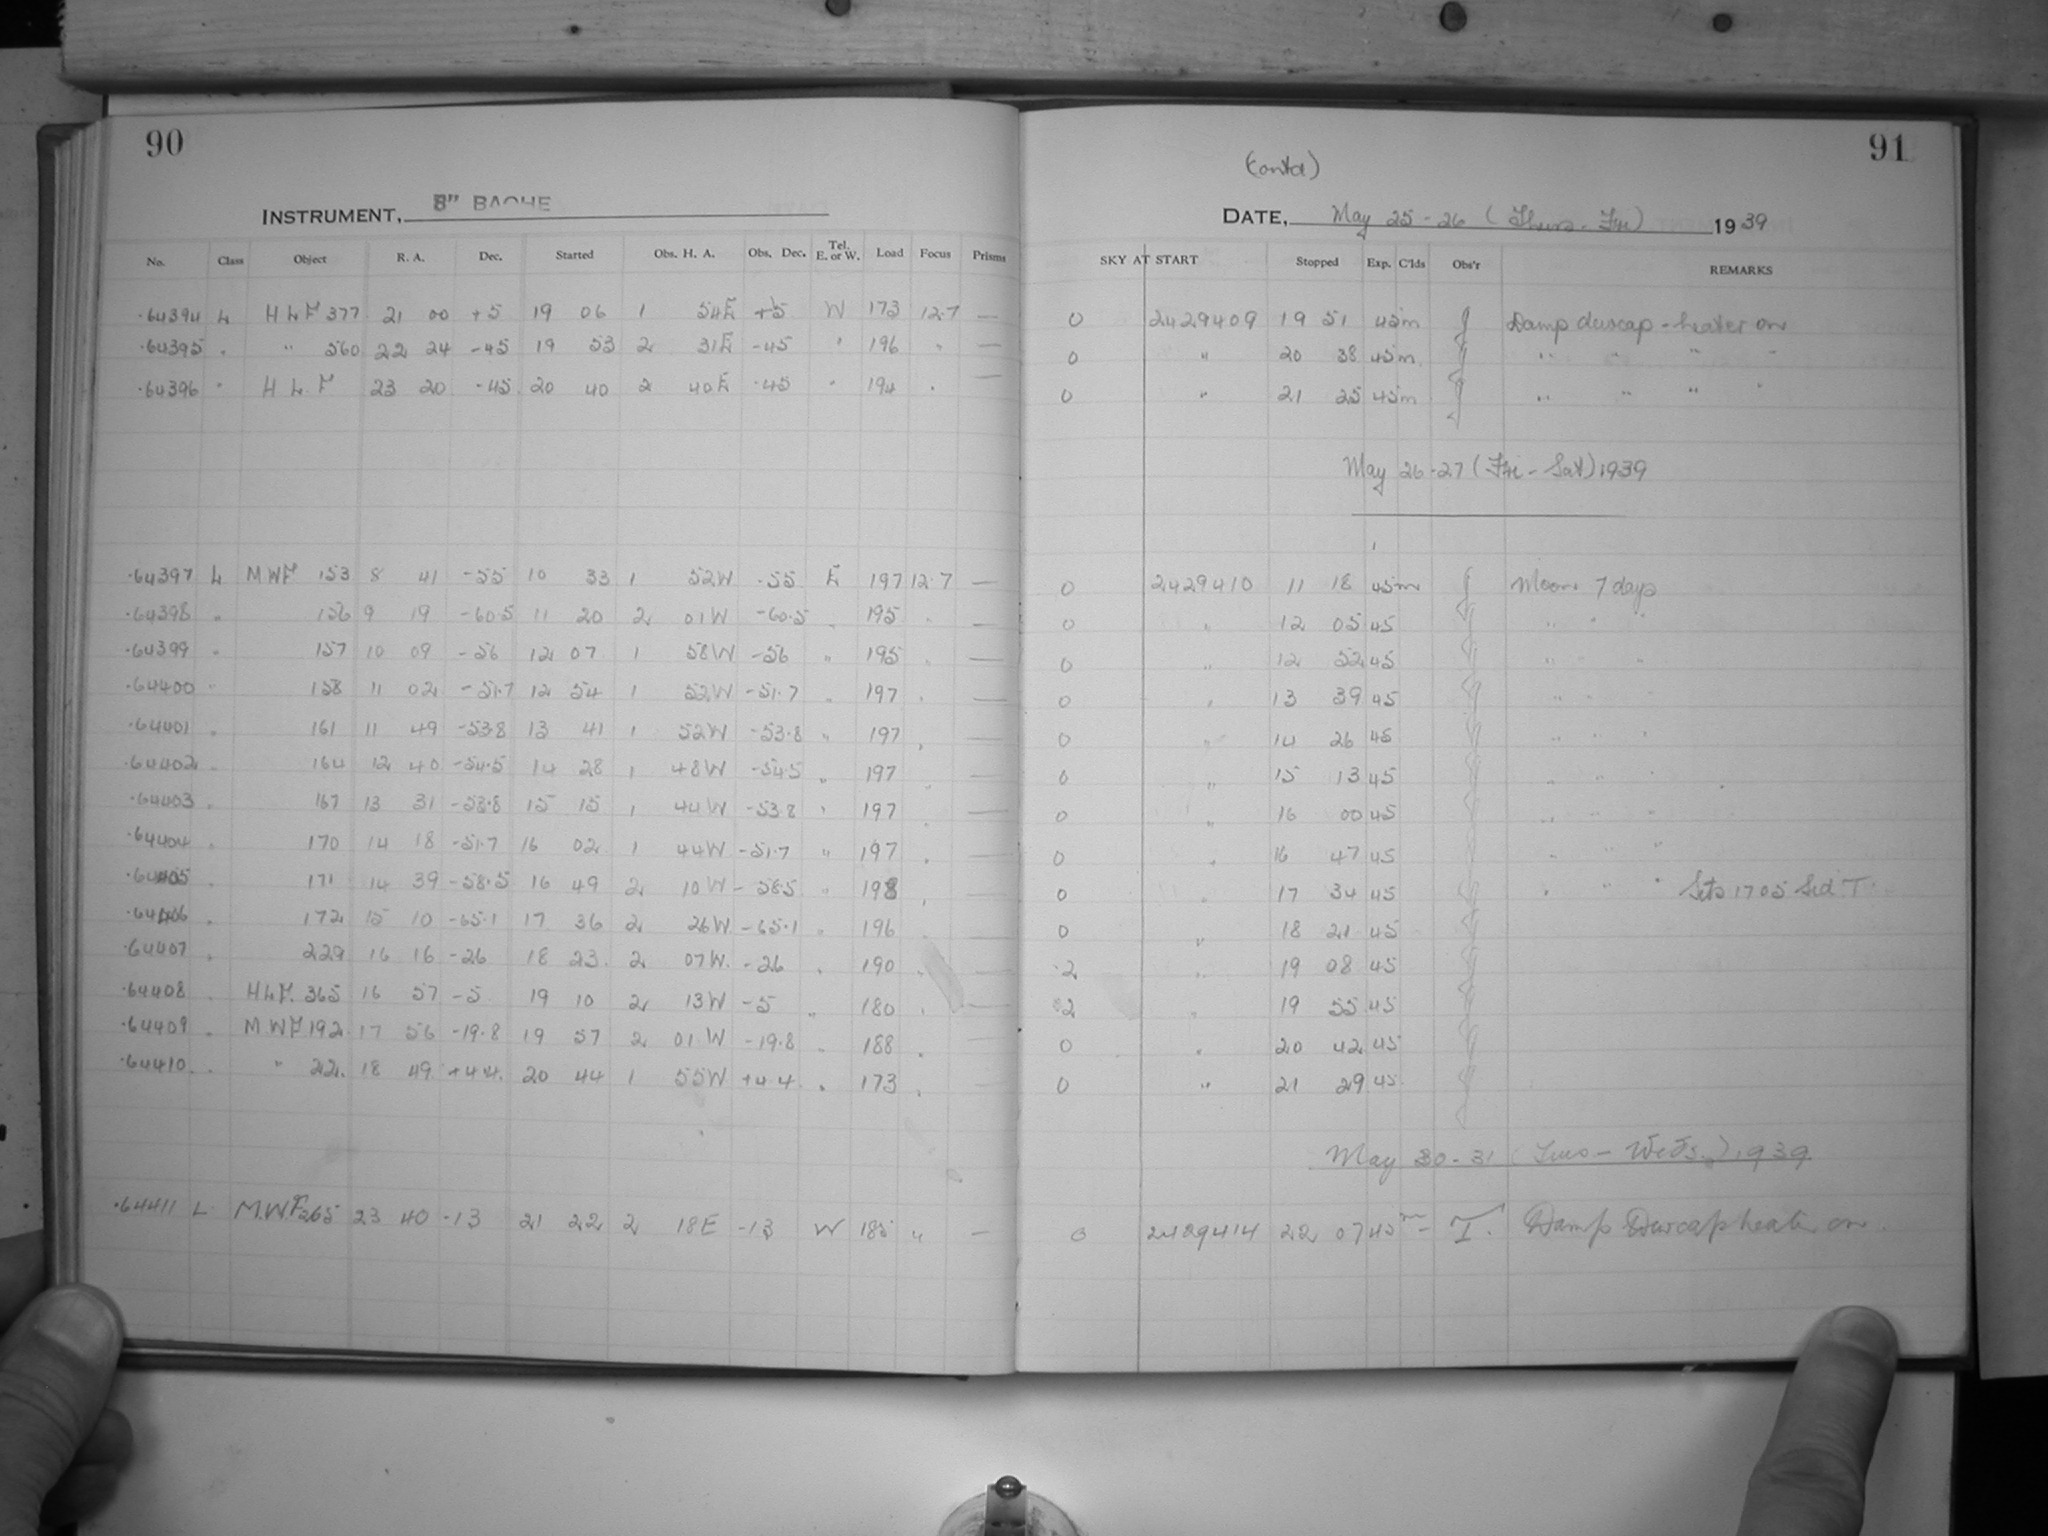 90
INSTRUMENT, 8" BACHE
No. Class Object R. A. Dec. Started Obs. H. A. Obs. Dec. Tel. E. or W. Load Focus Prisms
·64394 L HLF 377 21 00 +5 19 06 1 54E +5 W 173 12.7 —
·64395 " " 560 22 24 -45 19 53 2 31E -45 " 196 " —
·64396 " HLF 23 20 -45 20 40 2 40E -45 " 194 " —
·64397 L MWF 153 8 41 -55 10 33 1 52W -55 E 197 12.7 —
·64398 " 156 9 19 -60.5 11 20 2 01W -60.5 " 195 " —
·64399 " 157 10 09 -56 12 07 1 58W -56 " 195 " —
·64400 " 158 11 02 -51.7 12 54 1 52W -51.7 " 197 " —
·64401 " 161 11 49 -53.8 13 41 1 52W -53.8 " 197 " —
·64402 " 164 12 40 -54.5 14 28 1 48W -54.5 " 197 " —
·64403 " 167 13 31 -53.8 15 15 1 44W -53.8 " 197 " —
·64404 " 170 14 18 -51.7 16 02 1 44W -51.7 " 197 " —
·64405 " 171 14 39 -58.5 16 49 2 10W -58.5 " 198 " —
·64406 " 172 15 10 -65.1 17 36 2 26W -65.1 " 196 " —
·64407 " 229 16 16 -26 18 23 2 07W -26 " 190 " —
·64408 " HLF. 365 16 57 -5 19 10 2 13W -5 " 180 " —
·64409 " MWF 192 17 56 -19.8 19 57 2 01W -19.8 " 188 " —
·64410 " " 22. 18 49 +4.4 20 44 1 55W +4.4 " 173 " —
·64411 L M.W.F. 265 23 40 -13 21 22 2 18E -13 W 185 " —
91
(Contd)
DATE, May 25-26 (Thurs-Fri) 1939
SKY AT START Stopped Exp. C'lds Obs'r REMARKS
0 2429409 19 51 45m Damp dewcap - heater on
0 " 20 38 45m " " " "
0 " 21 25 45m " " " "
May 26-27 (Fri-Sat) 1939
0 2429410 11 18 45m Moon 7 days
0 " 12 05 45 " " "
0 " 12 52 45 " " "
0 " 13 39 45 " " "
0 " 14 26 45 " " "
0 " 15 13 45 " " "
0 " 16 00 45 " " "
0 " 16 47 45 " " "
0 " 17 34 45 " " " Sets 1705 Sid T.
0 " 18 21 45
2 " 19 08 45
2 " 19 55 45
0 " 20 42 45
0 " 21 29 45
May 30-31 (Tues-Weds.) 1939
0 2429414 22 07 45m - T. Damp Dewcap heater on.